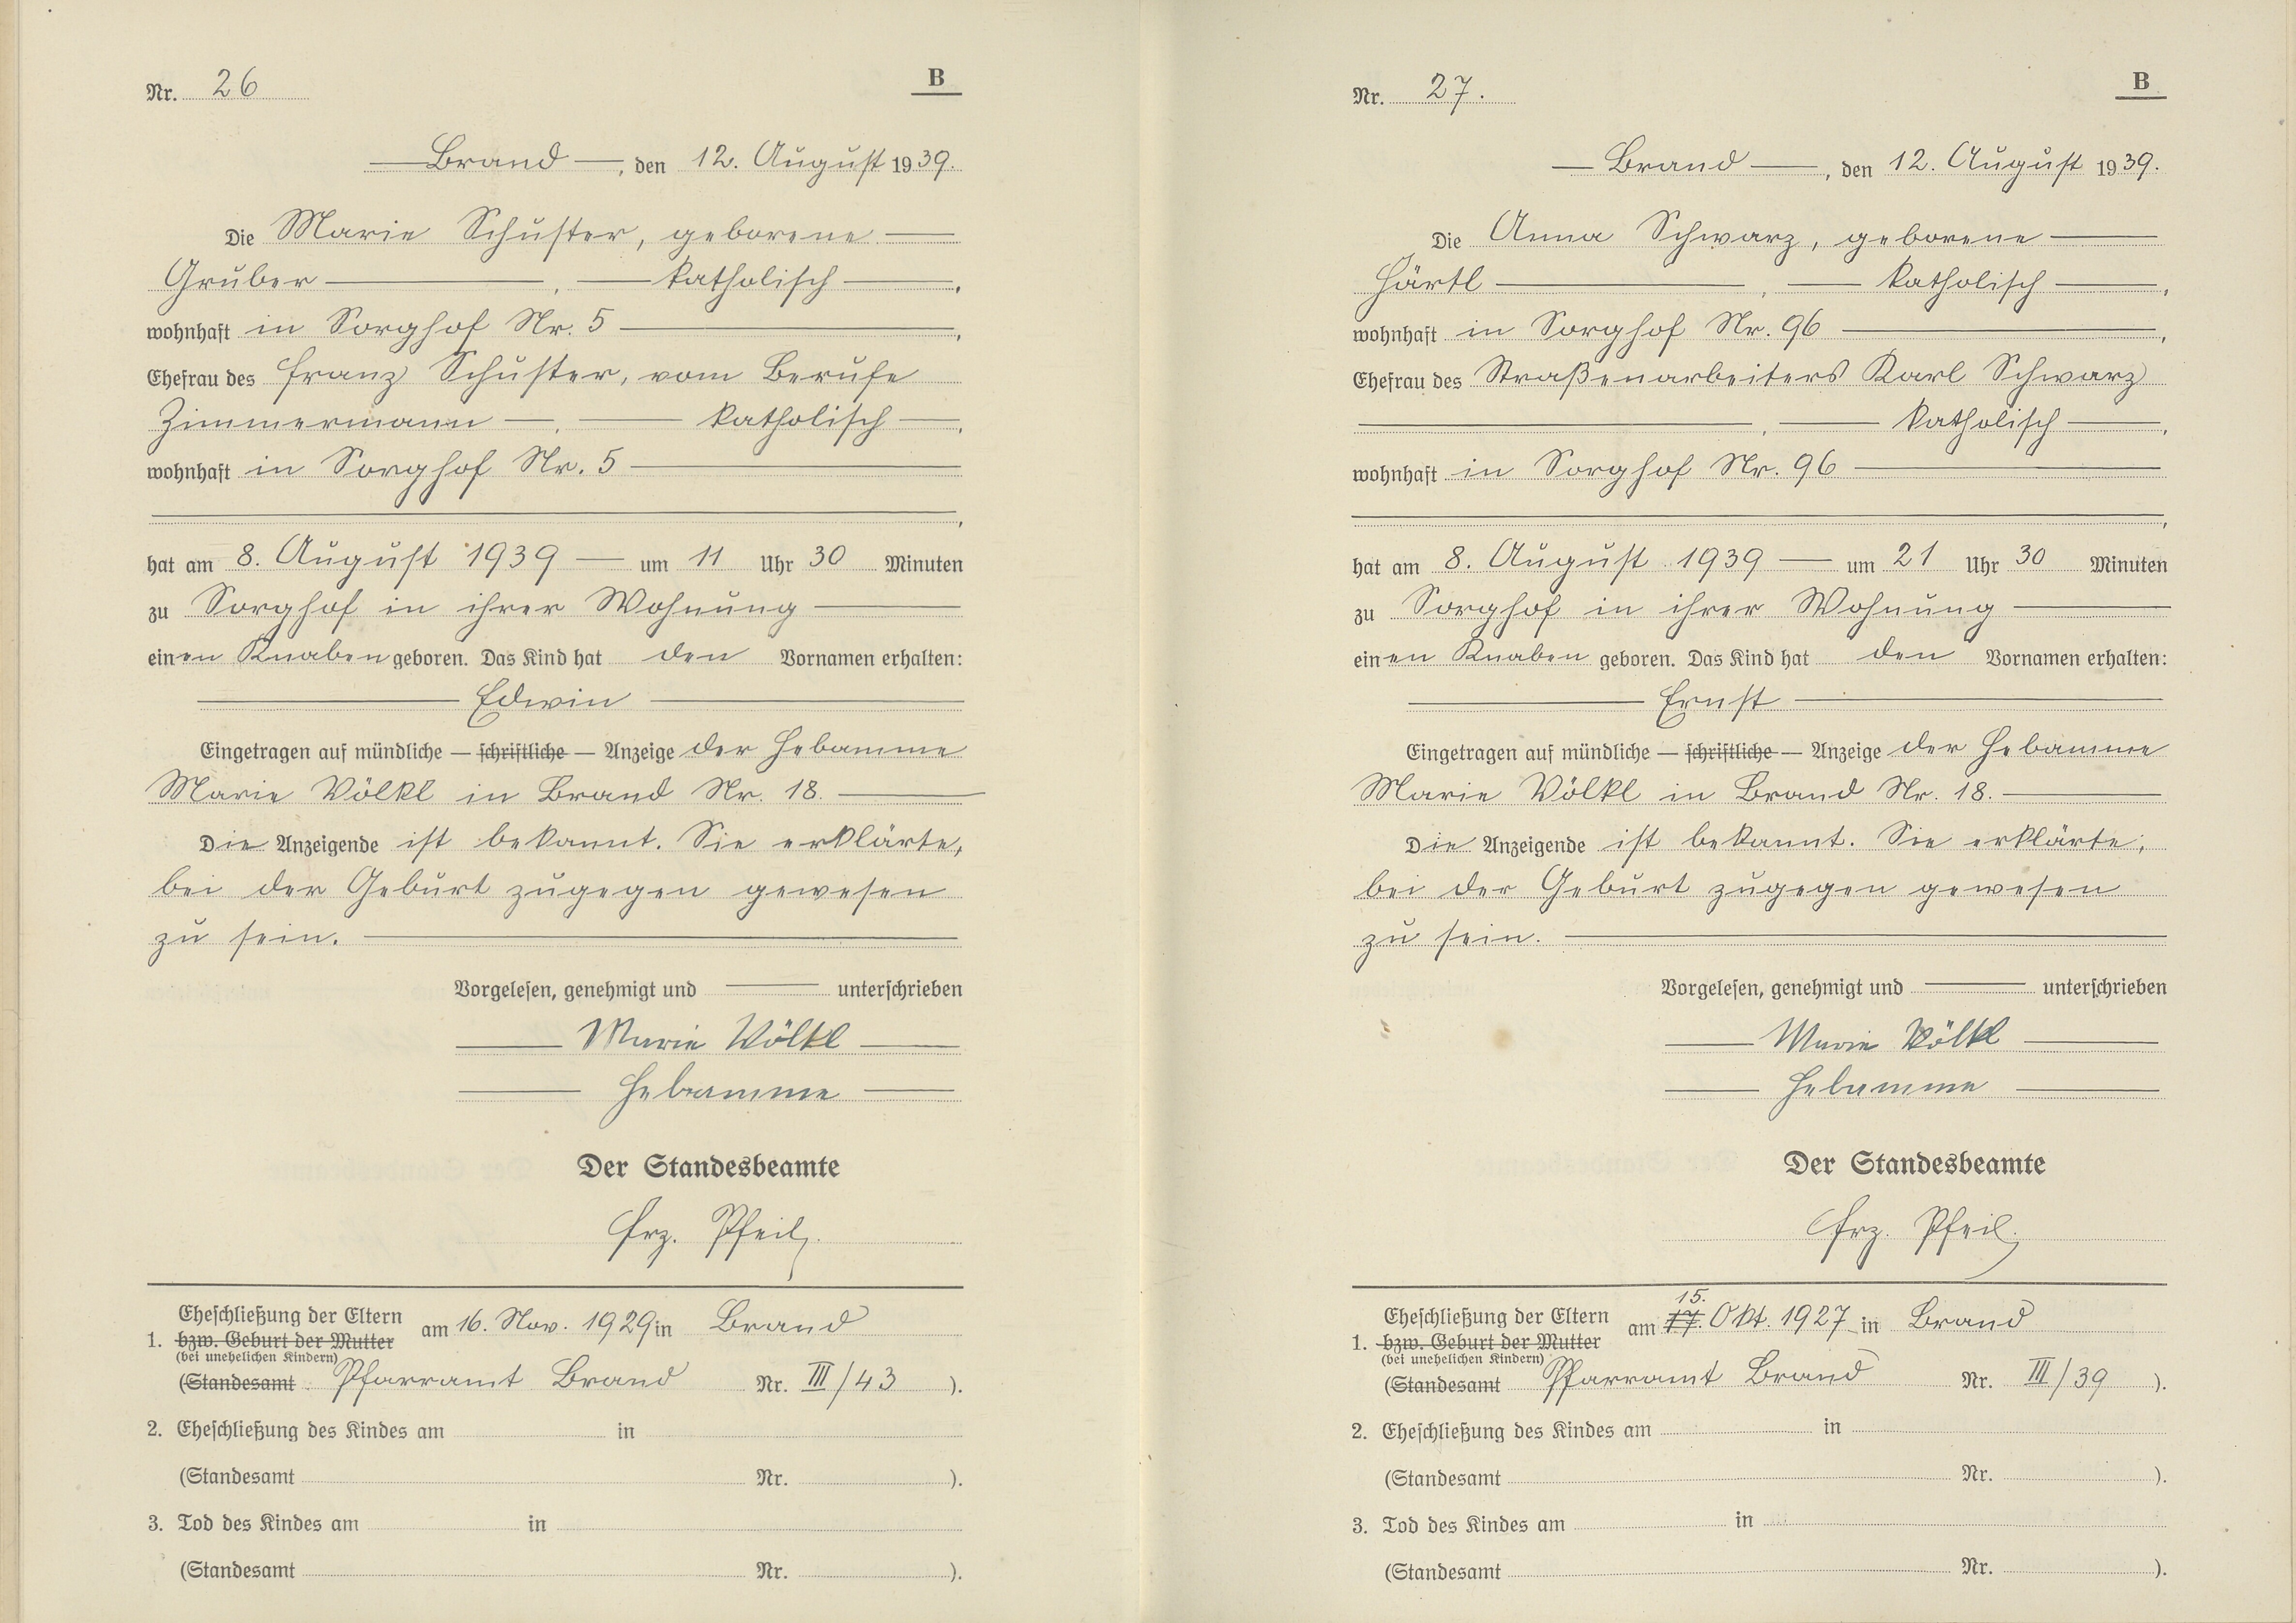 Nr. 26 B
Brand, den 12. August 1939.
Die Marie Schuster, geborene
Gruber, katholisch,
wohnhaft in Sorghof Nr. 5,
Ehefrau des Franz Schuster, vom Berufe
Zimmermann, katholisch,
wohnhaft in Sorghof Nr. 5
,
hat am 8. August 1939 um 11 Uhr 30 Minuten
zu Sorghof in ihrer Wohnung
einen Knaben geboren. Das Kind hat den Vornamen erhalten:
Edwin
Eingetragen auf mündliche — schriftliche — Anzeige der Hebamme
Marie Völkl in Brand Nr. 18.
Die Anzeigende ist bekannt. Sie erklärte,
bei der Geburt zugegen gewesen
zu sein.
Vorgelesen, genehmigt und unterschrieben
Marie Völkl
Hebamme
Der Standesbeamte
Frz. Pfeil
1. Eheschließung der Eltern am 16. Nov. 1929 in Brand
bzw. Geburt der Mutter
(bei unehelichen Kindern)
(Standesamt Pfarramt Brand Nr. III/43 ).
2. Eheschließung des Kindes am in
(Standesamt Nr. ).
3. Tod des Kindes am in
(Standesamt Nr. ).
Nr. 27. B
Brand, den 12. August 1939.
Die Anna Schwarz, geborene
Härtl, katholisch,
wohnhaft in Sorghof Nr. 96,
Ehefrau des Straßenarbeiters Karl Schwarz
, katholisch,
wohnhaft in Sorghof Nr. 96
,
hat am 8. August 1939 um 21 Uhr 30 Minuten
zu Sorghof in ihrer Wohnung
einen Knaben geboren. Das Kind hat den Vornamen erhalten:
Ernst
Eingetragen auf mündliche — schriftliche — Anzeige der Hebamme
Marie Völkl in Brand Nr. 18.
Die Anzeigende ist bekannt. Sie erklärte,
bei der Geburt zugegen gewesen
zu sein.
Vorgelesen, genehmigt und unterschrieben
Marie Völkl
Hebamme
Der Standesbeamte
Frz. Pfeil
15.
1. Eheschließung der Eltern am 17. Okt. 1927 in Brand
bzw. Geburt der Mutter
(bei unehelichen Kindern)
(Standesamt Pfarramt Brand Nr. III/39 ).
2. Eheschließung des Kindes am in
(Standesamt Nr. ).
3. Tod des Kindes am in
(Standesamt Nr. ).